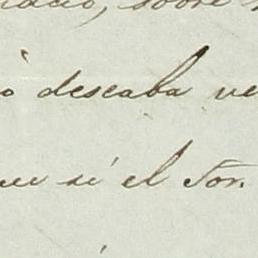 sobre
ò deseaba ve
que si el Sor.